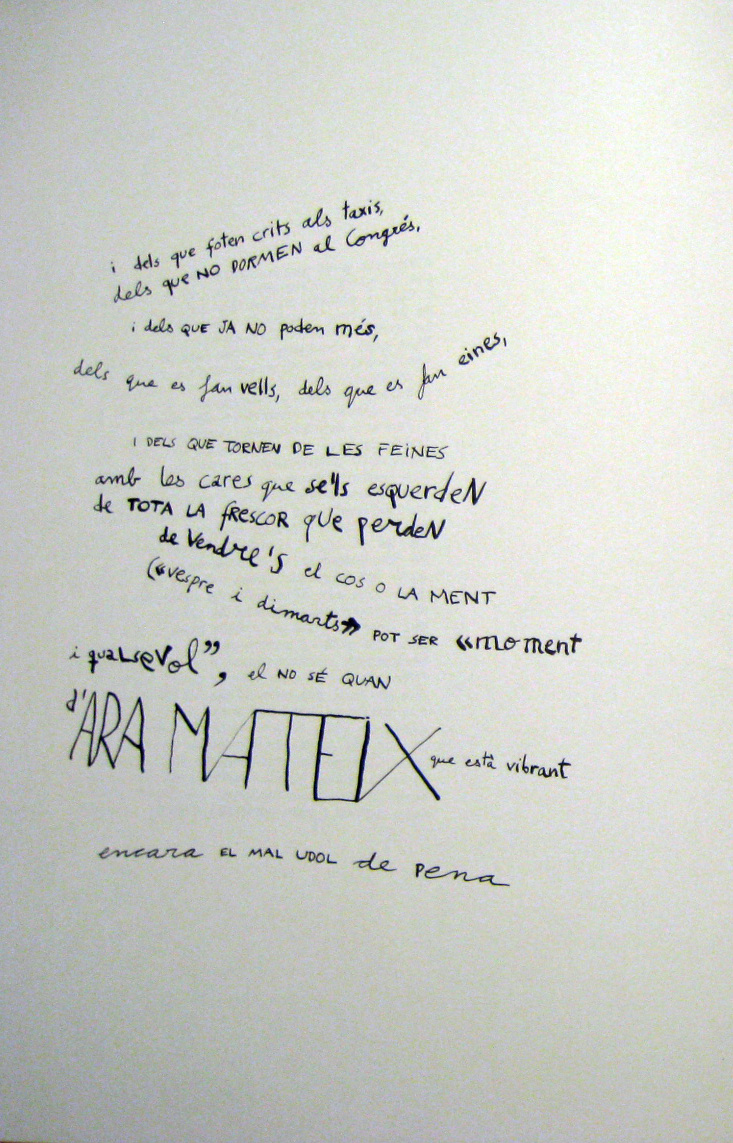 i dels que foten crits als taxis,
dels que NO DORMEN al Congrés,
i dels QUE JA NO poden més,
dels que es fan vells, dels que es fan eines,
I DELS QUE TORNEN DE LES FEINES
amb les cares que se'ls esquerdeN
de TOTA LA fRESCOR qUe perdeN
de Vendre's el COS O LA MENT
(«vespre i dimarts» POT SER «moment
i quaLseVol”, el NO SÉ QUAN
d'ARA MATEIX que està vibrant
encara EL MAL UDOL de pena